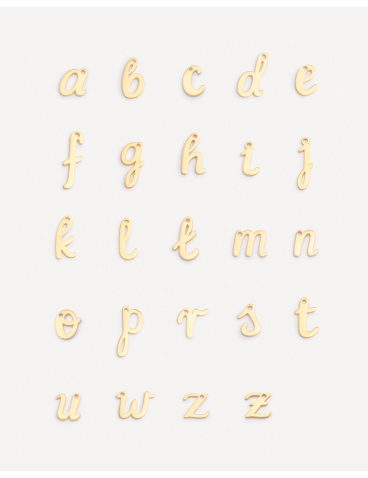 a b c d e
f g h i j
k l ł m n
o p r s t
u w z ż